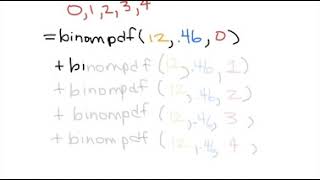 0,1,2,3,4
=binompdf(12,.46,0)
+binompdf(12,.46,1)
+binompdf(12,.46,2)
+binompdf(12,.46,3)
+binompdf(12,.46,4)